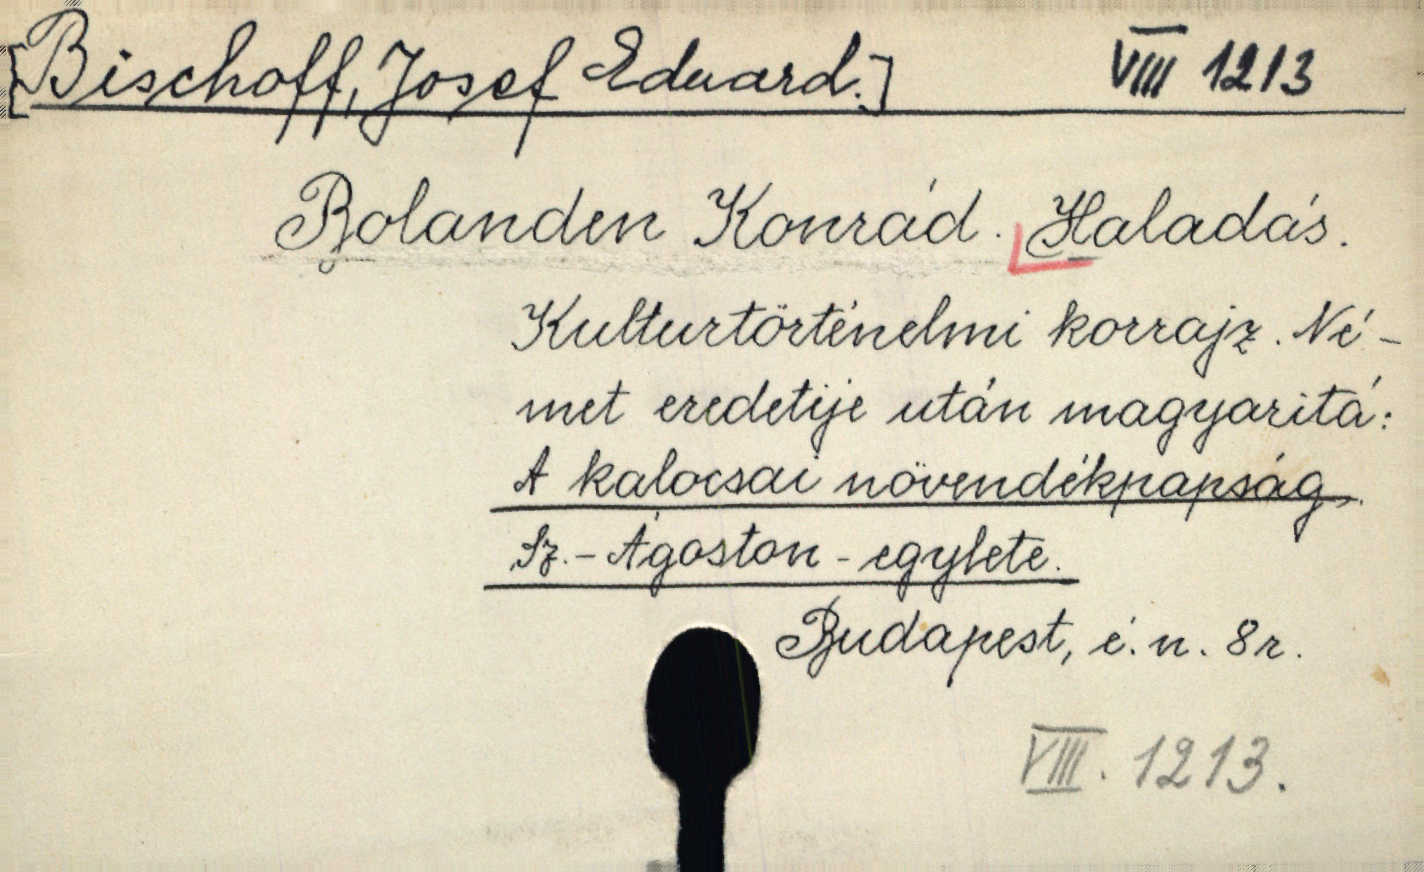 [Bischoff, Josef Eduard.] VIII 1213
Bolanden Konrád. Haladás.
Kulturtörténelmi korrajz. Né-
met eredetije után magyaritá:
A kalocsai növendékpapság
Sz.-Ágoston-egylete.
Budapest, é. n. 8r.
VIII. 1213.